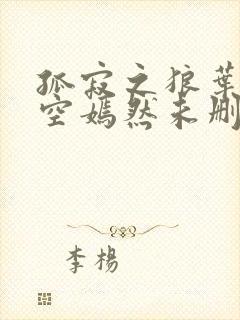 孤寂之狼葉
空嫣然未删
李楊